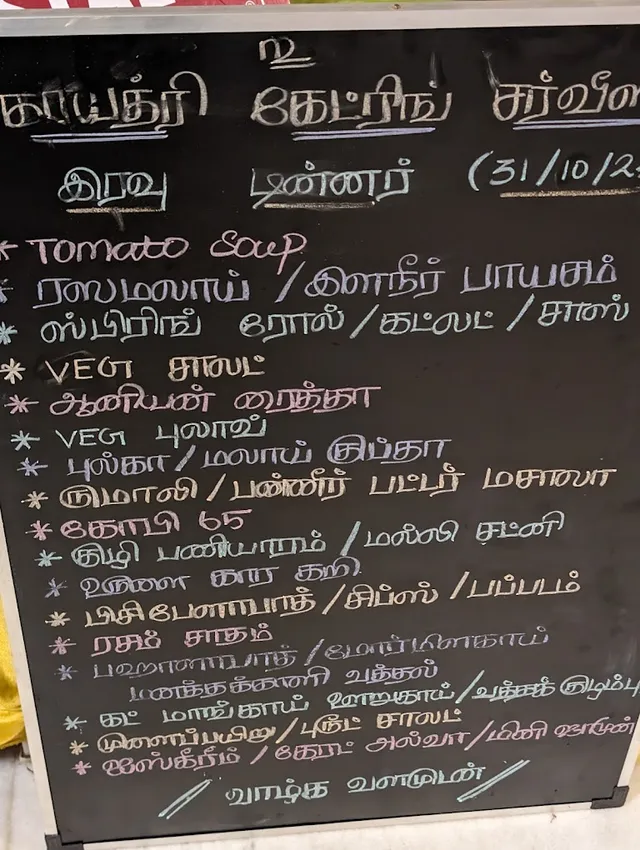 உ
காயத்ரி கேட்ரிங் சர்வீஸ
இரவு டின்னர் (31/10/2
* TOMATO Soup
* ரஸமலாய் / இளநீர் பாயசம்
* ஸ்பிரிங் ரோல் / கட்லட் / சாஸ்
* VEG சாலட்
* ஆனியன் ரைத்தா
* VEG புலாவ்
* புல்கா / மலாய் குப்தா
* ருமாலி / பன்னீர் பட்டர் மசாலா
* கோபி 65
* குழி பணியாரம் / மல்லி சட்னி
* உருளை கார கறி
* பிசிபேளாபாத் / சிப்ஸ் / பப்படம்
* ரசம் சாதம்
* பஹாளாபாத் / மோர்மிளகாய்
மணத்தக்காளி வத்தல்
* கட் மாங்காய் ஊறுகாய் / வத்தக் குழம்பு
* முளைப்பயிறு / புரூட் சாலட்
* ஐஸ்கிரீம் / கேரட் அல்வா / மினி ஜாமுன்
// வாழ்க வளமுடன் //